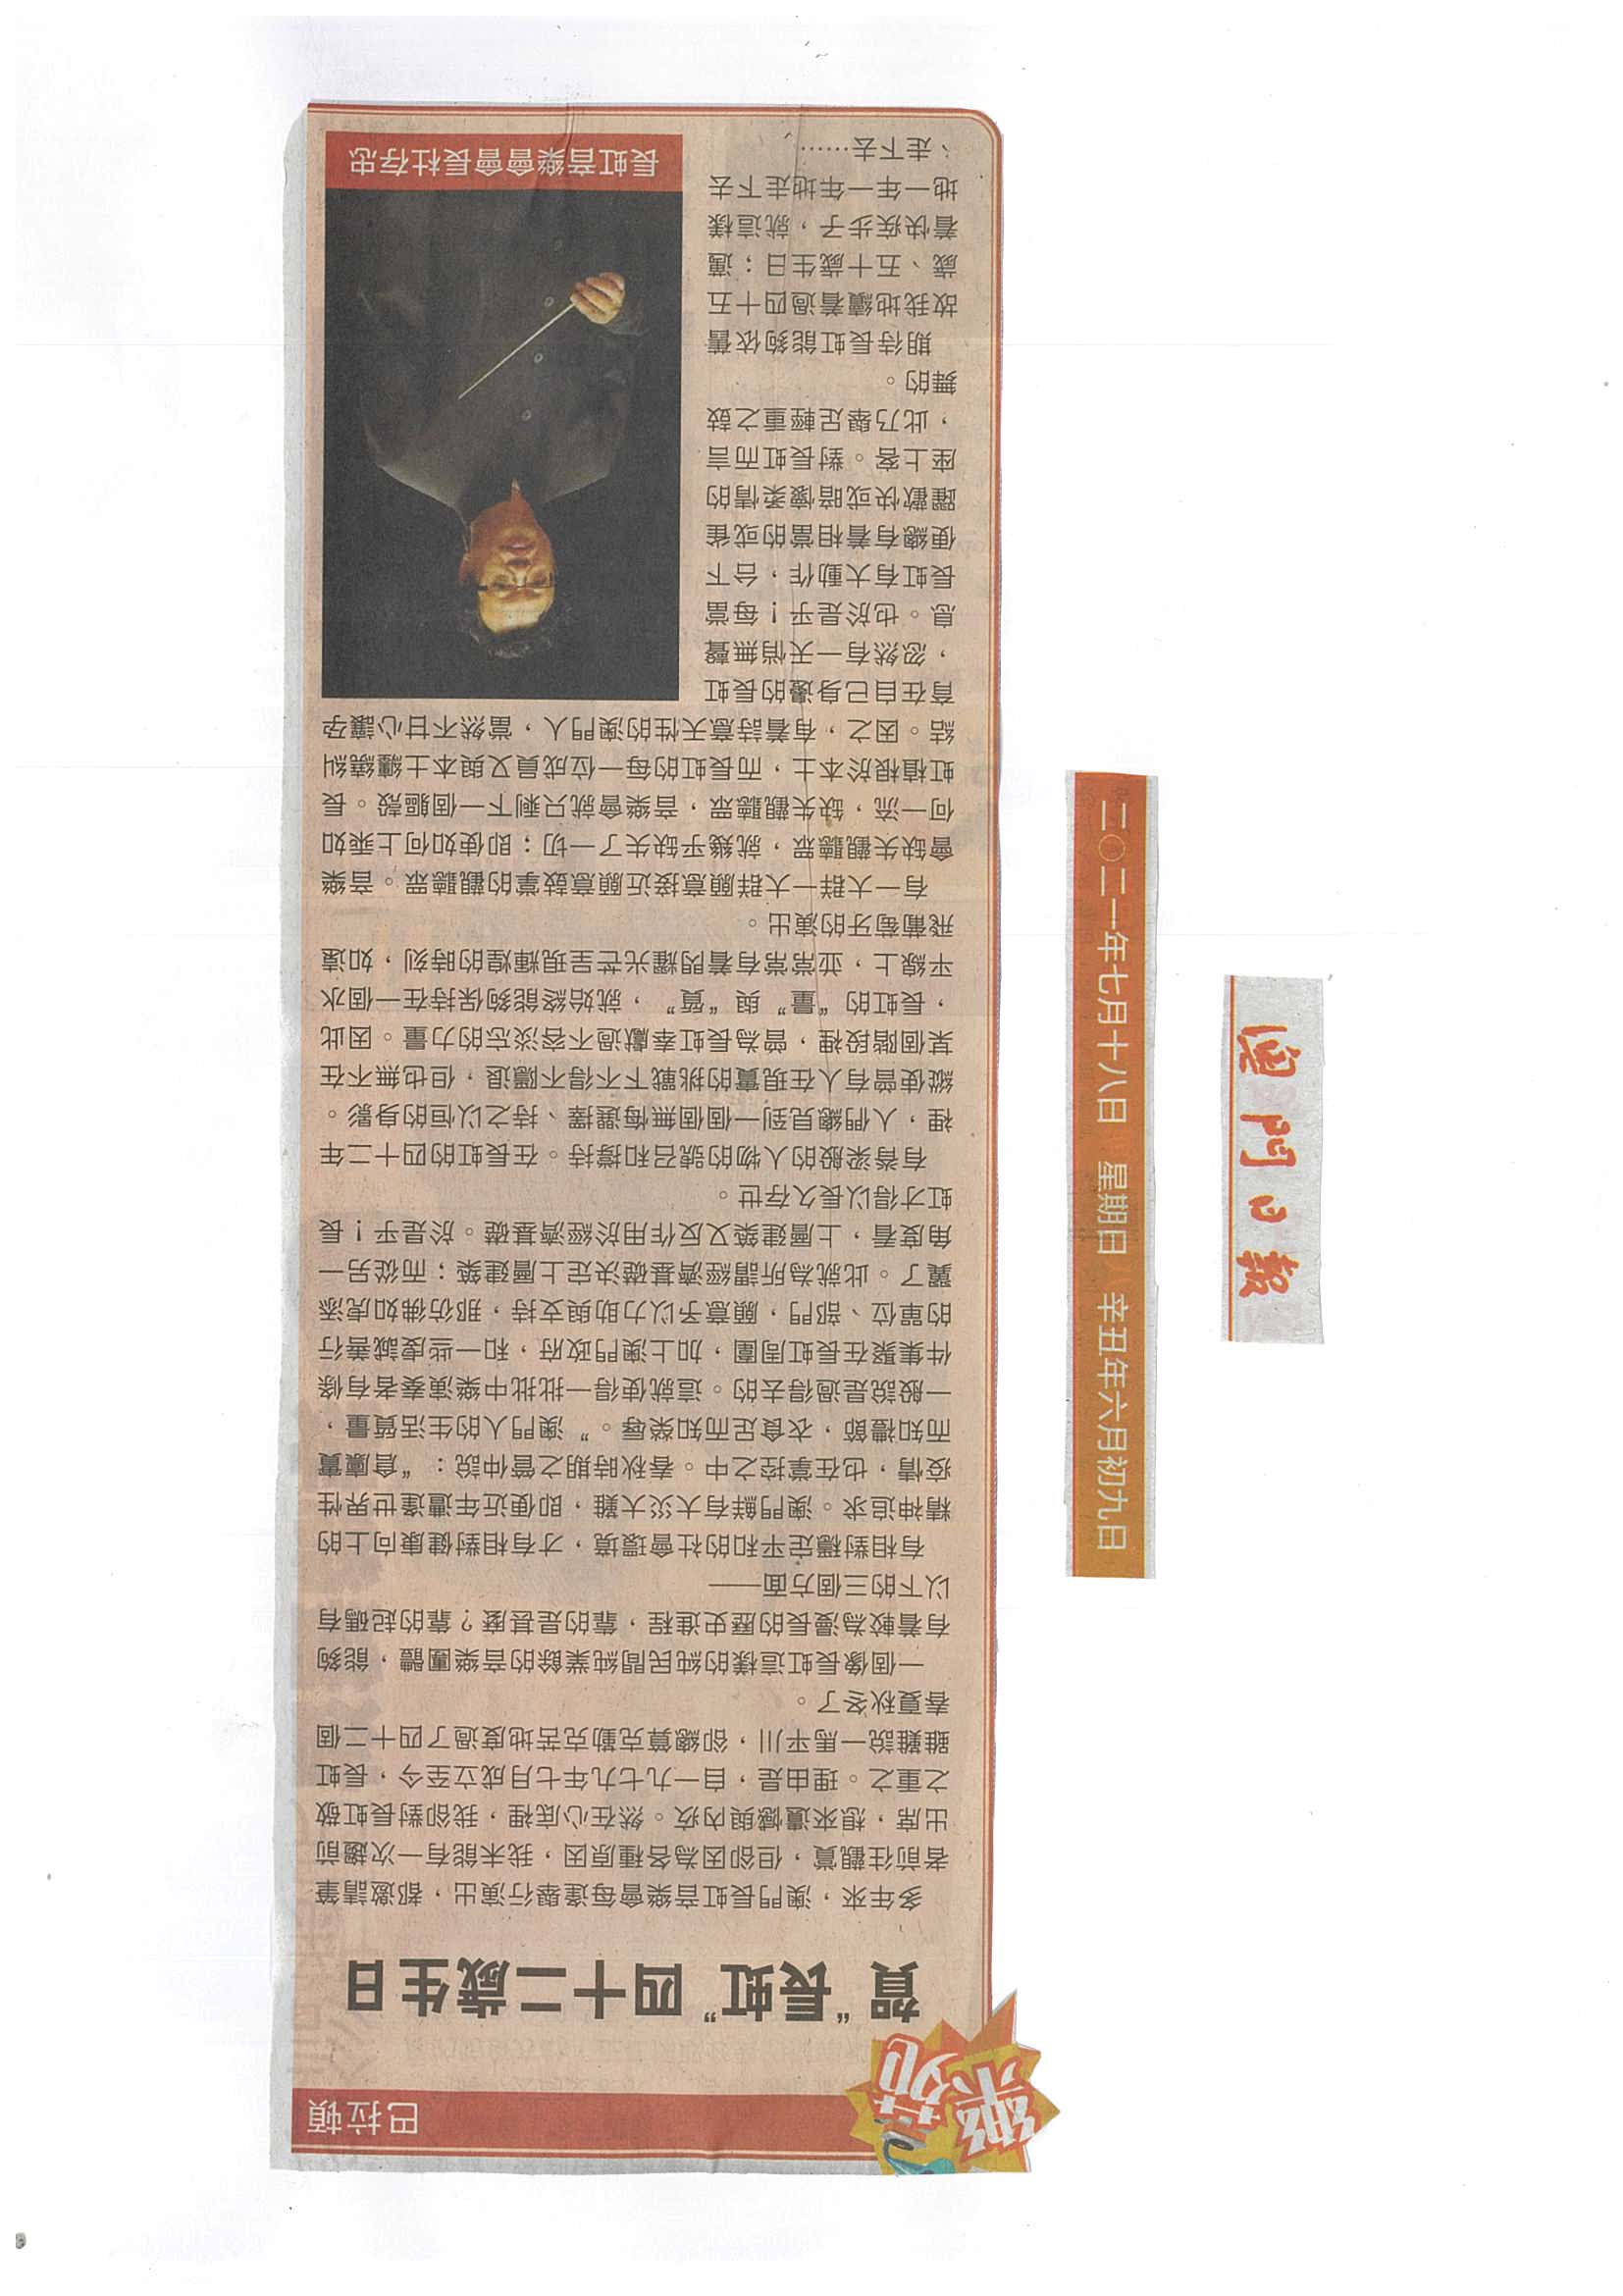 澳門日報
二〇二一年七月十八日 星期日 辛丑年六月初九日
樂苑
巴拉頓
賀“長虹”四十二歲生日
多年來，澳門長虹音樂會每逢舉行演出，都邀請筆
者前往觀賞，但卻因為各種原因，我未能有一次趨前
出席，想來遺憾與內疚。然在心底裡，我卻對長虹敬
之重之。理由是，自一九七九年七月成立至今，長虹
雖難說一馬平川，卻總算克勤克苦地度過了四十二個
春夏秋冬了。
一個像長虹這樣的純民間純業餘的音樂團體，能夠
有着較為漫長的歷史進程，靠的是甚麼？靠的起碼有
以下的三個方面——
有相對穩定平和的社會環境，才有相對健康向上的
精神追求。澳門鮮有大災大難，即便近年遭逢世界性
疫情，也在掌控之中。春秋時期之管仲說：“倉廩實
而知禮節，衣食足而知榮辱。”澳門人的生活質量，
一般說是過得去的。這就使得一批批中樂演奏者有條
件集聚在長虹周圍，加上澳門政府，和一些虔誠善行
的單位、部門，願意予以力助與支持，那仿佛如虎添
翼了。此就為所謂經濟基礎決定上層建築；而從另一
角度看，上層建築又反作用於經濟基礎。於是乎！長
虹才得以長久存世。
有脊梁般的人物的號召和撐持。在長虹的四十二年
裡，人們總見到一個個無悔選擇、持之以恒的身影。
縱使曾有人在現實的挑戰下不得不隱退，但也無不在
某個階段裡，曾為長虹奉獻過不容淡忘的力量。因此
，長虹的“量”與“質”，就始終能夠保持在一個水
平線上，並常常有着閃耀光芒呈現輝煌的時刻，如遠
飛葡萄牙的演出。
有一大群一大群願意接近願意鼓掌的觀聽眾。音樂
會缺失觀聽眾，就幾乎缺失了一切；即使如何上乘如
何一流，缺失觀聽眾，音樂會就只剩下一個軀殼。長
虹植根於本土，而長虹的每一位成員又與本土纏繞糾
結。因之，有着詩意天性的澳門人，當然不甘心讓孕
育在自己身邊的長虹
，忽然有一天悄無聲
息。也於是乎！每當
長虹有大動作，台下
便總有着相當的或雀
躍歡快或暗懷柔情的
座上客。對長虹而言
，此乃舉足輕重之鼓
舞的。
期待長虹能夠依舊
故我地續着過四十五
歲、五十歲生日；邁
着快疾步子，就這樣
地一年一年地走下去
、走下去……
長虹音樂會會長杜存忠